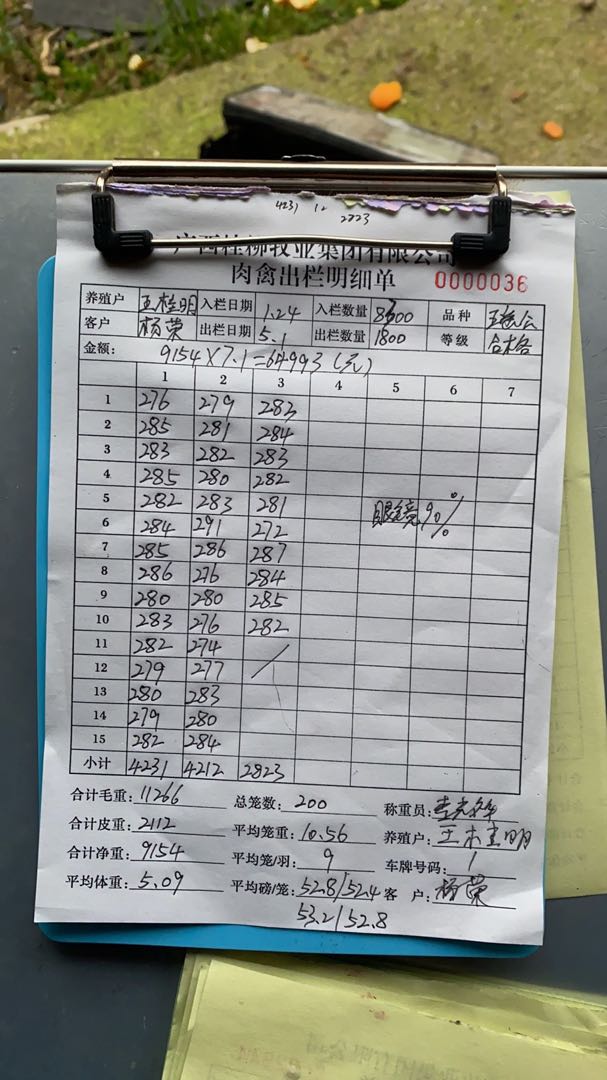 4231 12 2823
广西桂柳牧业集团有限公司
肉禽出栏明细单 0000036
养殖户 王桂明 入栏日期 1.24 入栏数量 8300 品种
客户 杨荣 出栏日期 5.1 出栏数量 1800 等级 合格
金额: 9154×7.1=64993(元)
1 2 3 4 5 6 7
1 276 279 283
2 285 281 284
3 283 282 283
4 285 280 282
5 282 283 281 眼镜90%
6 284 291 272
7 285 286 287
8 286 276 284
9 280 280 285
10 283 276 282
11 282 274
12 279 277
13 280 283
14 279 280
15 282 284
小计 4231 4212 2823
合计毛重: 11266 总笼数: 200 称重员:
合计皮重: 2112 平均笼重: 10.56 养殖户: 王桂明
合计净重: 9154 平均笼/羽: 9 车牌号码: 1
平均体重: 5.09 平均磅/笼: 52.8/52.4 客 户: 杨荣
53.2/52.8